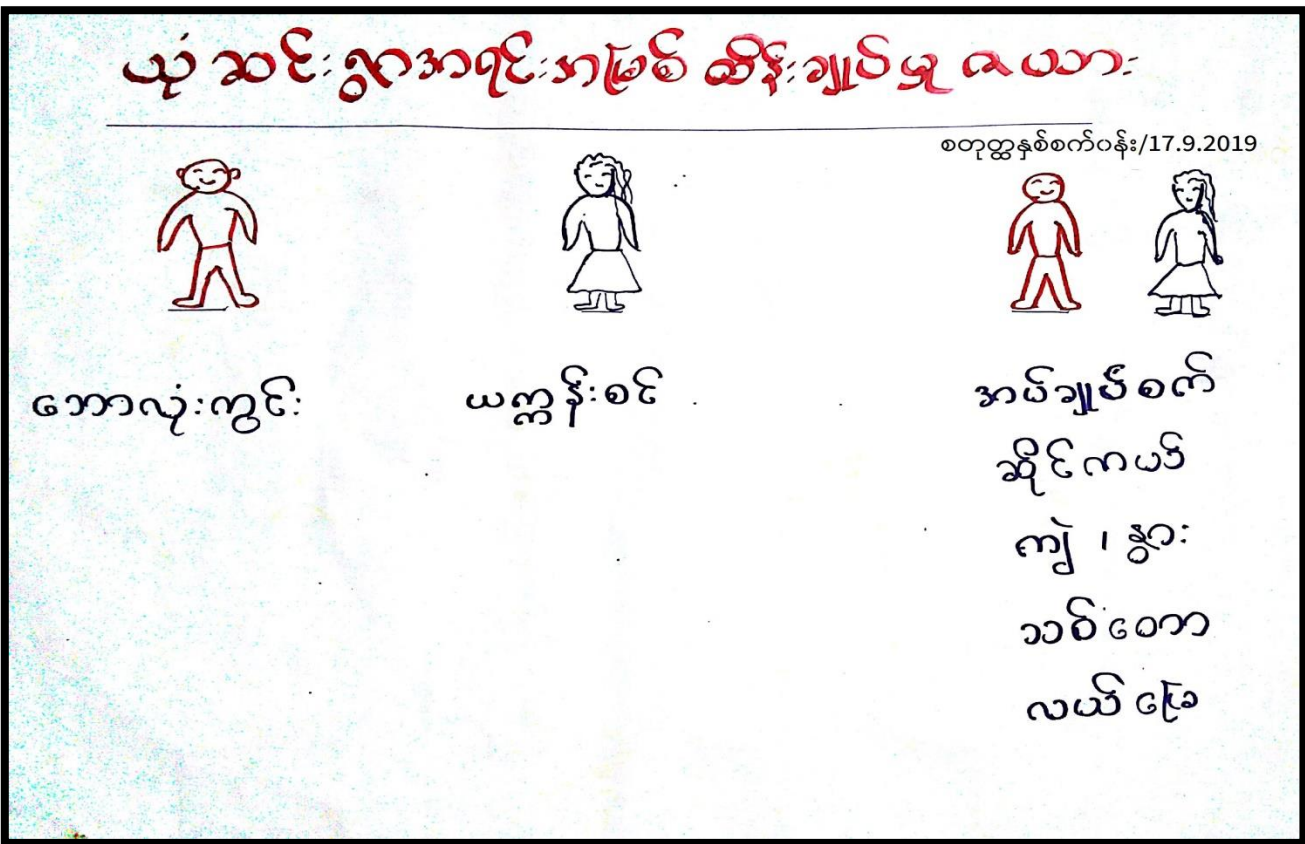 ယုံဆင်းရွာအရင်းအမြစ် ထိန်းချုပ်မှု ဇယား
စတုတ္ထနှစ်စက်ဝန်း/17.9.2019
ဘောလုံးကွင်း
ယက္ကန်းစင်
အပ်ချုပ်စက်
ဆိုင်ကယ်
ကျွဲ ၊ နွား
သစ်တော
လယ်မြေ